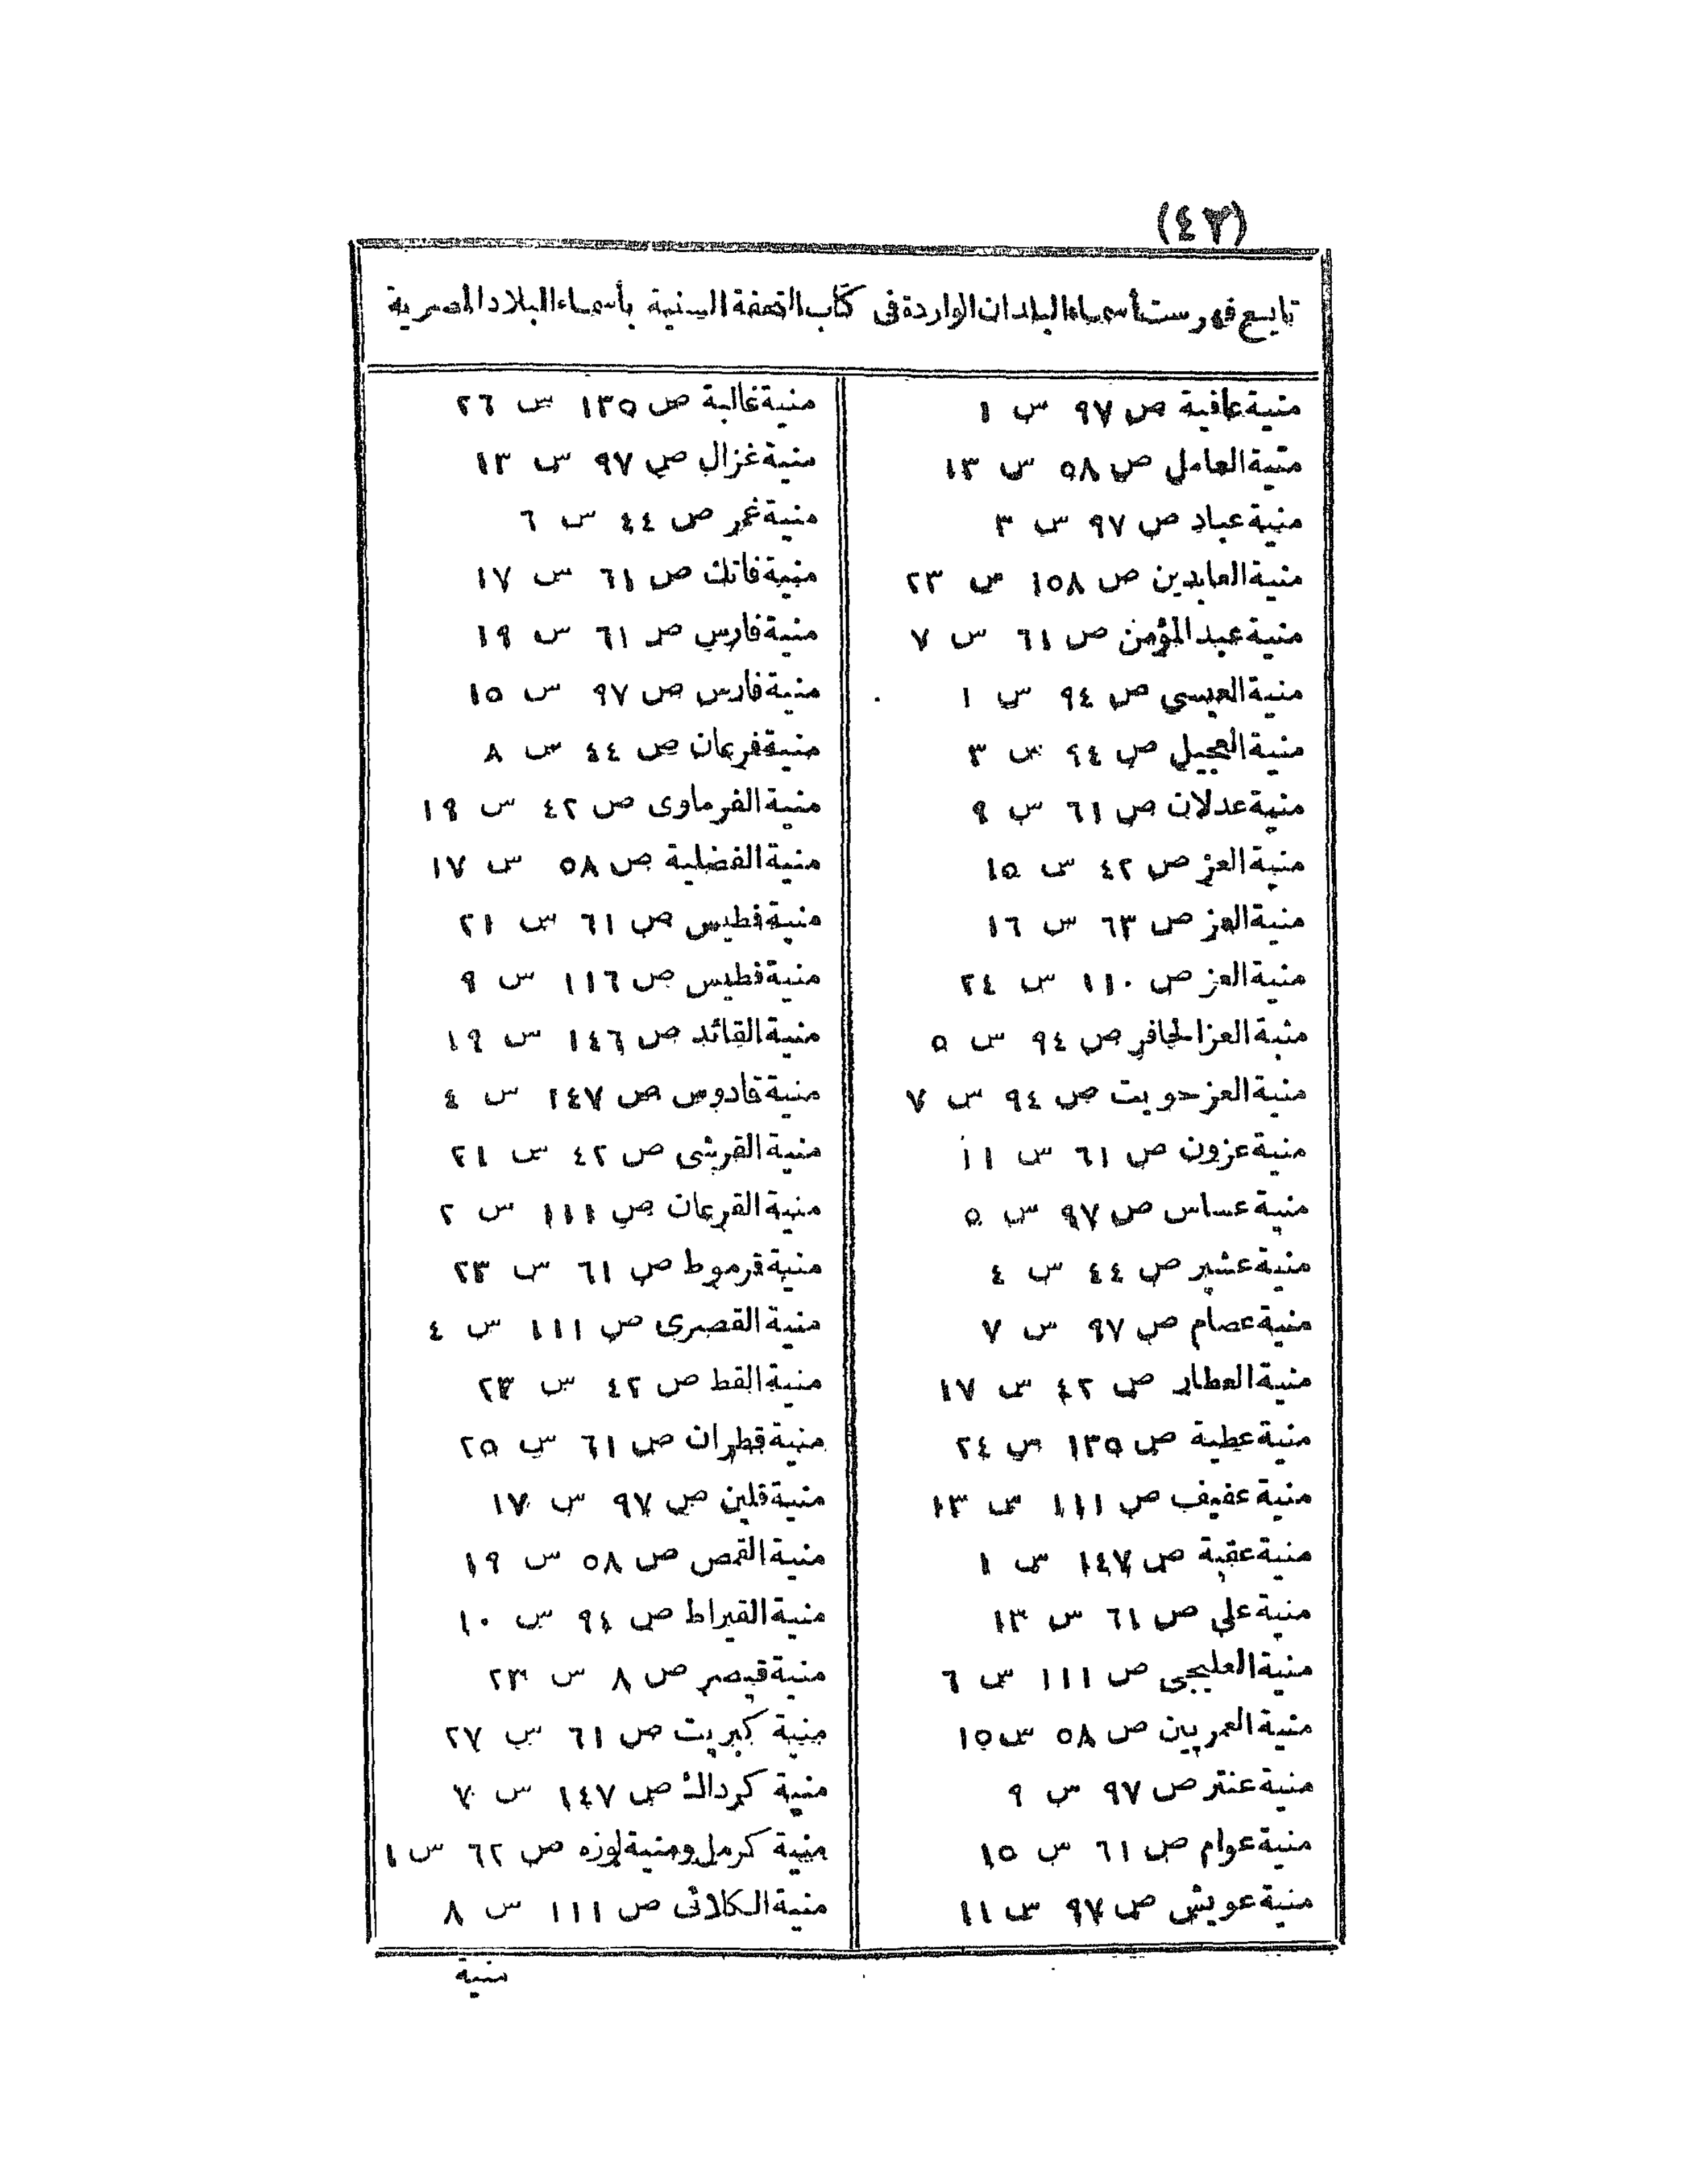 (٤٣)
تابع فهرست أسماء البلدان الواردة فى كتاب التحفة السنية بأسماء البلاد المصرية
منية عافية ص ٩٧ س ١
منية العامل ص ٥٨ س ١٣
منية عباد ص ٩٧ س ٣
منية العابدين ص ١٥٨ س ٢٣
منية عبد المؤمن ص ٦١ س ٧
منية العبسى ص ٩٤ س ١
منية العجيل ص ٩٤ س ٣
منية عدلان ص ٦١ س ٩
منية العز ص ٤٢ س ١٥
منية العز ص ٦٣ س ١٦
منية العز ص ١١٠ س ٢٤
منية العز الحافر ص ٩٤ س ٥
منية العز حويت ص ٩٤ س ٧
منية عزون ص ٦١ س ١١
منية عساس ص ٩٧ س ٥
منية عشير ص ٤٤ س ٤
منية عصام ص ٩٧ س ٧
منية العطار ص ٤٢ س ١٧
منية عطية ص ١٣٥ س ٢٤
منية عفيف ص ١١١ س ١٣
منية عقبة ص ١٤٧ س ١
منية على ص ٦١ س ١٣
منية العليجى ص ١١١ س ٦
منية العمريين ص ٥٨ س ١٥
منية عنتر ص ٩٧ س ٩
منية عوام ص ٦١ س ١٥
منية عويش ص ٩٧ س ١١
منية غالبة ص ١٣٥ س ٢٦
منية غزال ص ٩٧ س ١٣
منية غمر ص ٤٤ س ٦
منية فاتك ص ٦١ س ١٧
منية فارس ص ٦١ س ١٩
منية فارس ص ٩٧ س ١٥
منية فرعان ص ٤٤ س ٨
منية الفرماوى ص ٤٢ س ١٩
منية الفضلية ص ٥٨ س ١٧
منية فطيس ص ٦١ س ٢١
منية فطيس ص ١١٦ س ٩
منية القائد ص ١٤٦ س ١٩
منية قادوس ص ١٤٧ س ٤
منية القرشى ص ٤٢ س ٢١
منية القرعان ص ١١١ س ٢
منية قرموط ص ٦١ س ٢٣
منية القصرى ص ١١١ س ٤
منية القط ص ٤٢ س ٢٣
منية قطران ص ٦١ س ٢٥
منية قلين ص ٩٧ س ١٧
منية القمص ص ٥٨ س ١٩
منية القيراط ص ٩٤ س ١٠
منية قيصر ص ٨ س ٢٣
منية كبريت ص ٦١ س ٢٧
منية كرداك ص ١٤٧ س ٧
منية كرمل ومنية لوزه ص ٦٢ س ١
منية الكلائى ص ١١١ س ٨
منية